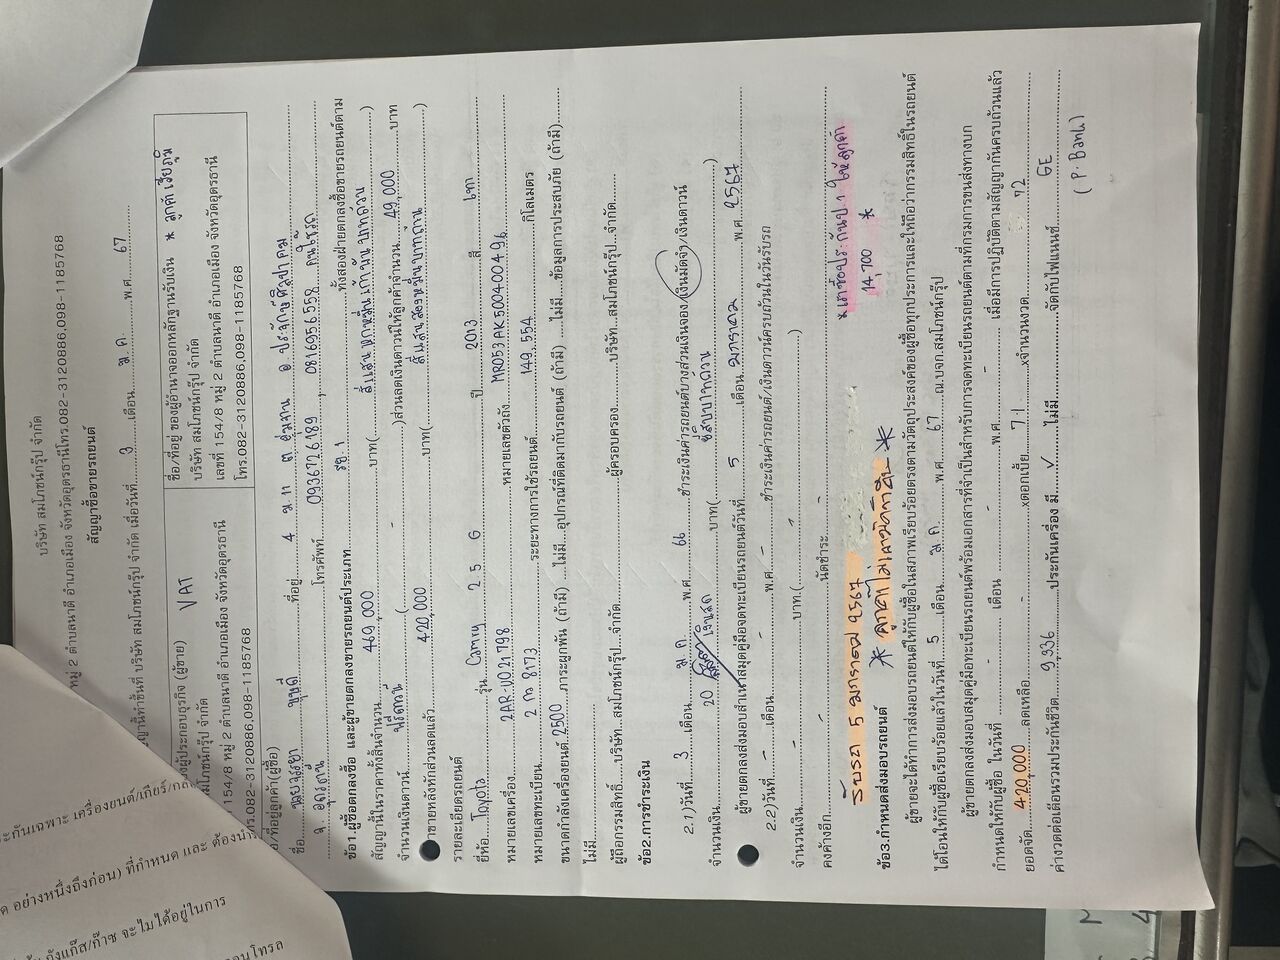 บริษัท สมโภชน์กรุ๊ป จำกัด
หมู่ 2 ตำบลนาดี อำเภอเมือง จังหวัดอุดรธานีโทร.082-3120886,098-1185768
สัญญาซื้อขายรถยนต์
ญานี้ทำขึ้นที่ บริษัท สมโภชน์กรุ๊ป จำกัด เมื่อวันที่ 3 เดือน ม.ค. พ.ศ. 67
ของผู้ประกอบธุรกิจ (ผู้ขาย) VAT
มโภชน์กรุ๊ป จำกัด
154/8 หมู่ 2 ตำบลนาดี อำเภอเมือง จังหวัดอุดรธานี
ทร.082-3120886,098-1185768
ชื่อ/ที่อยู่ ของผู้อำนาจออกหลักฐานรับเงิน * ลูกค้า
บริษัท สมโภชน์กรุ๊ป จำกัด
เลขที่ 154/8 หมู่ 2 ตำบลนาดี อำเภอเมือง จังหวัดอุดรธานี
โทร.082-3120886,098-1185768
ชื่อ/ที่อยู่ลูกค้า(ผู้ซื้อ)
ชื่อ ที่อยู่ 4 ม.11 อ. ประจักษ์ศิลปาคม
จ. อุดรธานี โทรศัพท์ 0936726189 , 0816956558
ข้อ1.ผู้ซื้อตกลงซื้อ และผู้ขายตกลงขายรถยนต์ประเภท รย. 1 ทั้งสองฝ่ายตกลงซื้อขายรถยนต์ตาม
สัญญานี้ในราคาทั้งสิ้นจำนวน 469,000 บาท( สี่แสนหกหมื่นเก้าพันบาทถ้วน )
จำนวนเงินดาวน์ ฟรีดาวน์ ( - )ส่วนลดเงินดาวน์ให้ลูกค้าจำนวน 49,000 บาท
ราคาขายหลังหักส่วนลดแล้ว 420,000 บาท( สี่แสนสองหมื่นบาทถ้วน )
รายละเอียดรถยนต์
ยี่ห้อ Toyota รุ่น Camry 2 5 G ปี 2013 สี เทา
หมายเลขเครื่อง 2AR-U021798 หมายเลขตัวถัง MR053AK500400496
หมายเลขทะเบียน 2 กว 8173 ระยะทางการใช้รถยนต์ 149,554 กิโลเมตร
ขนาดกำลังเครื่องยนต์ 2500 ภาระผูกพัน (ถ้ามี) ...ไม่มี...อุปกรณ์ที่ติดมากับรถยนต์ (ถ้ามี) ....ไม่มี....ข้อมูลการประสบภัย (ถ้ามี)
ไม่มี
ผู้ถือกรรมสิทธิ์.....บริษัท..สมโภชน์กรุ๊ป..จำกัด ผู้ครอบครอง บริษัท...สมโภชน์กรุ๊ป...จำกัด
ข้อ2.การชำระเงิน
2.1)วันที่ 3 เดือน ม.ค. พ.ศ. 66 ชำระเงินค่ารถยนต์บางส่วนเงินจอง/เงินมัดจำ/เงินดาวน์
จำนวนเงิน 20 เงินสด บาท( ยี่สิบบาทถ้วน )
ผู้ขายตกลงส่งมอบสำเนาสมุดคู่มือจดทะเบียนรถยนต์วันที่ 5 เดือน มกราคม พ.ศ. 2567
2.2)วันที่ - เดือน - พ.ศ. - ชำระเงินค่ารถยนต์/เงินดาวน์ครบถ้วนในวันรับรถ
จำนวนเงิน - บาท.( - )
คงค้างอีก - นัดชำระ -
*เราซื้อประกันป.1 ให้ลูกค้า
14,700 *
รับรถ 5 มกราคม 2567
ข้อ3.กำหนดส่งมอบรถยนต์
ผู้ขายจะได้ทำการส่งมอบรถยนต์ให้กับผู้ซื้อในสภาพเรียบร้อยตรงตามวัตถุประสงค์ของผู้ซื้อทุกประการและให้ถือว่ากรรมสิทธิ์ในรถยนต์
ได้โอนให้กับผู้ซื้อเรียบร้อยแล้วในวันที่ 5 เดือน ม.ค. พ.ศ. 67 ณ.บจก.สมโภชน์กรุ๊ป
ผู้ขายตกลงส่งมอบสมุดคู่มือทะเบียนรถยนต์พร้อมเอกสารที่จำเป็นสำหรับการจดทะเบียนรถยนต์ตามที่กรมการขนส่งทางบก
กำหนดให้กับผู้ซื้อ ในวันที่ - เดือน - พ.ศ. - เมื่อมีการปฏิบัติตามสัญญากันครบถ้วนแล้ว
ยอดจัด 420,000 ลดเหลือ - xดอกเบี้ย 7.1 xจำนวนงวด 72
ค่างวดต่อเดือนรวมประกันชีวิต 9,336 ประกันเครื่อง มี ✓ ไม่มี จัดกับไฟแนนซ์ GE
( P. Bank )
ะกันเฉพาะ เครื่องยนต์/เกียร์/กล
ด อย่างหนึ่งถึงก่อน) ที่กำหนด และ ต้องนำ
ถังแก๊ส/ก๊าซ จะไม่ได้อยู่ในการ
อนโทรล